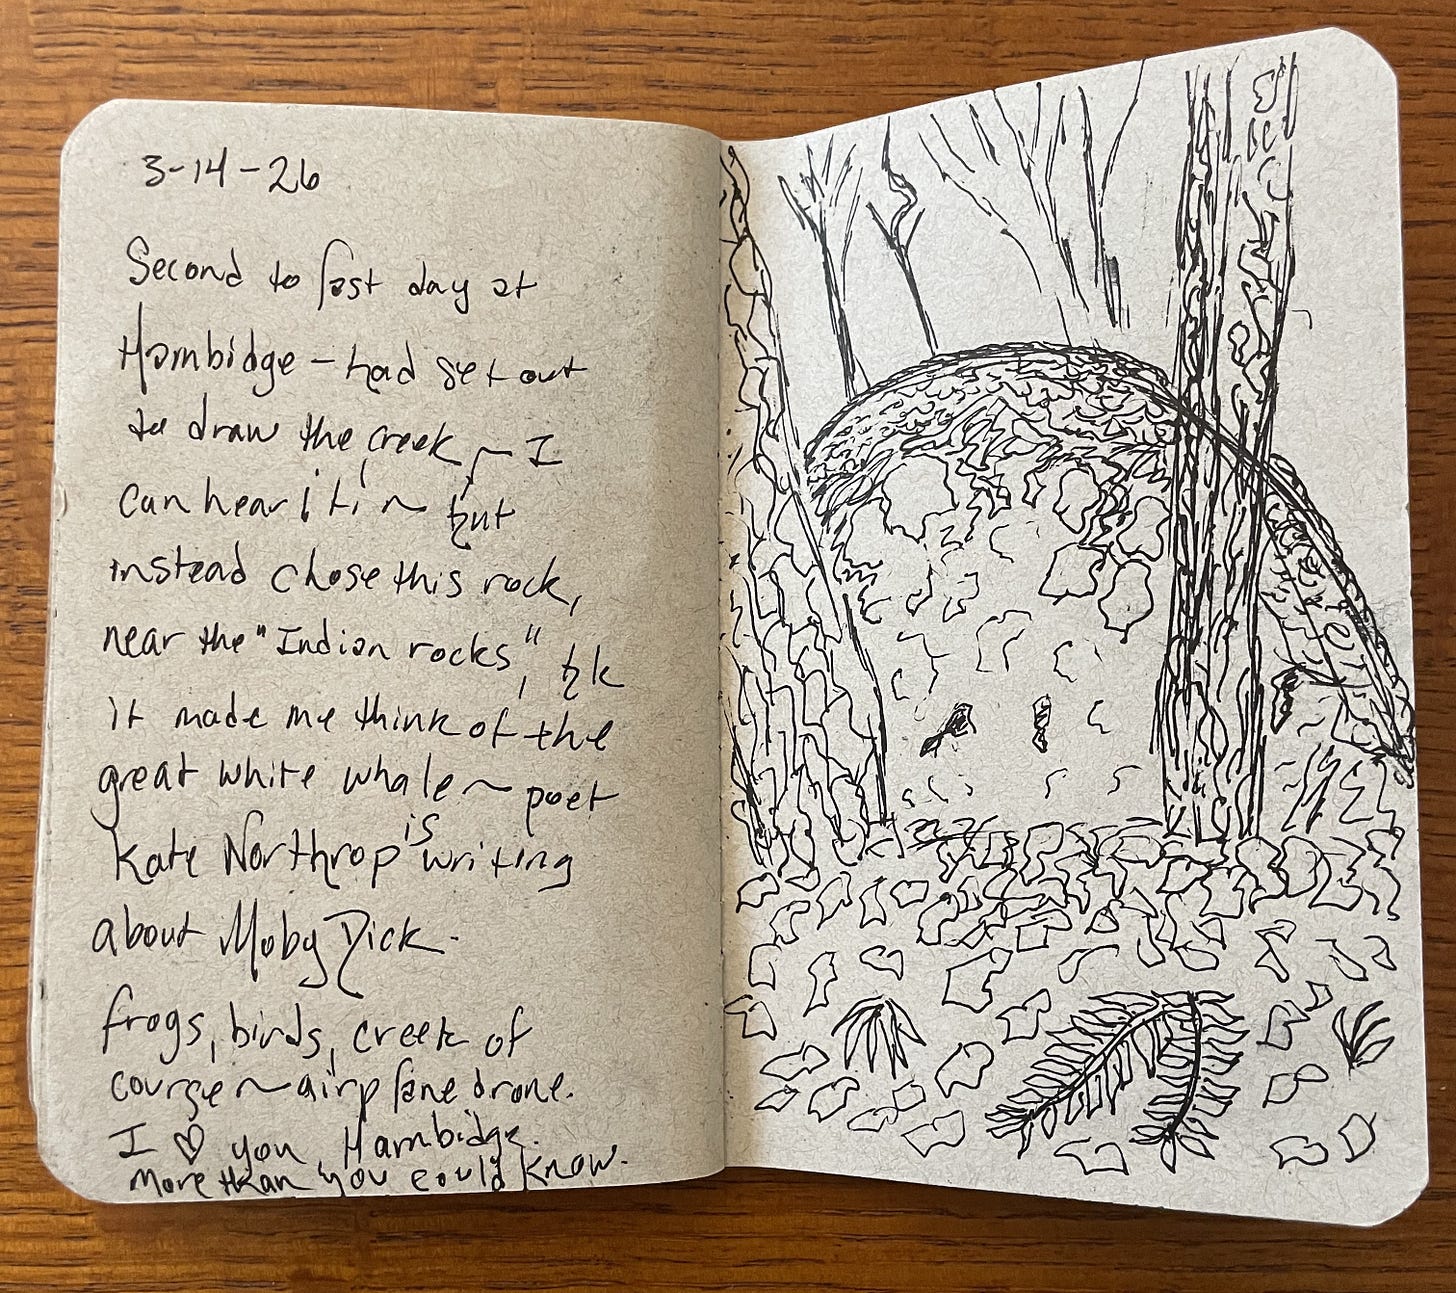 3-14-26
Second to last day at
Hambidge – had set out
to draw the creek ~ I
can hear it ~ but
instead chose this rock,
near the "Indian rocks", bk
it made me think of the
great white whale ~ poet
Kate Northrop is writing
about Moby Dick.
frogs, birds, creek of
course ~ airplane drone.
I ♡ you Hambidge.
more than you could know.